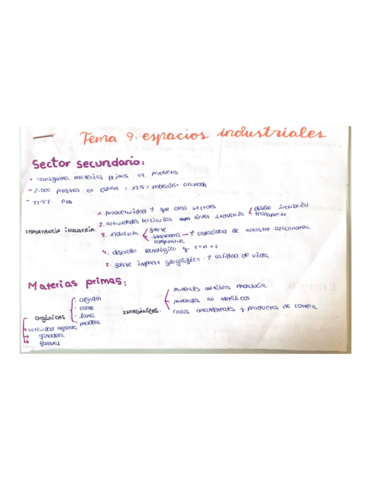 Tema 9: espacios industriales
Sector secundario:
- transforma materias primas en productos
- 2.000 puestos en España, 12.5% población ocupada
- % PIB
importancia industria
1. productividad ↑ que otros sectores
2. actividades terciarias diseño industrial
transporte
3. industria
fuerte
competitiva
↑ capacidad de nuestra economía
4. desarrollo tecnológico y I+D+i
5. fuerte impacto geográfico: ↑ calidad de vida
Materias primas:
orgánicas:
algodón
carne
lana
madera
ganadera
forestal
inorgánicas:
minerales metálicos
minerales no metálicos
rocas ornamentales y productos de cantera